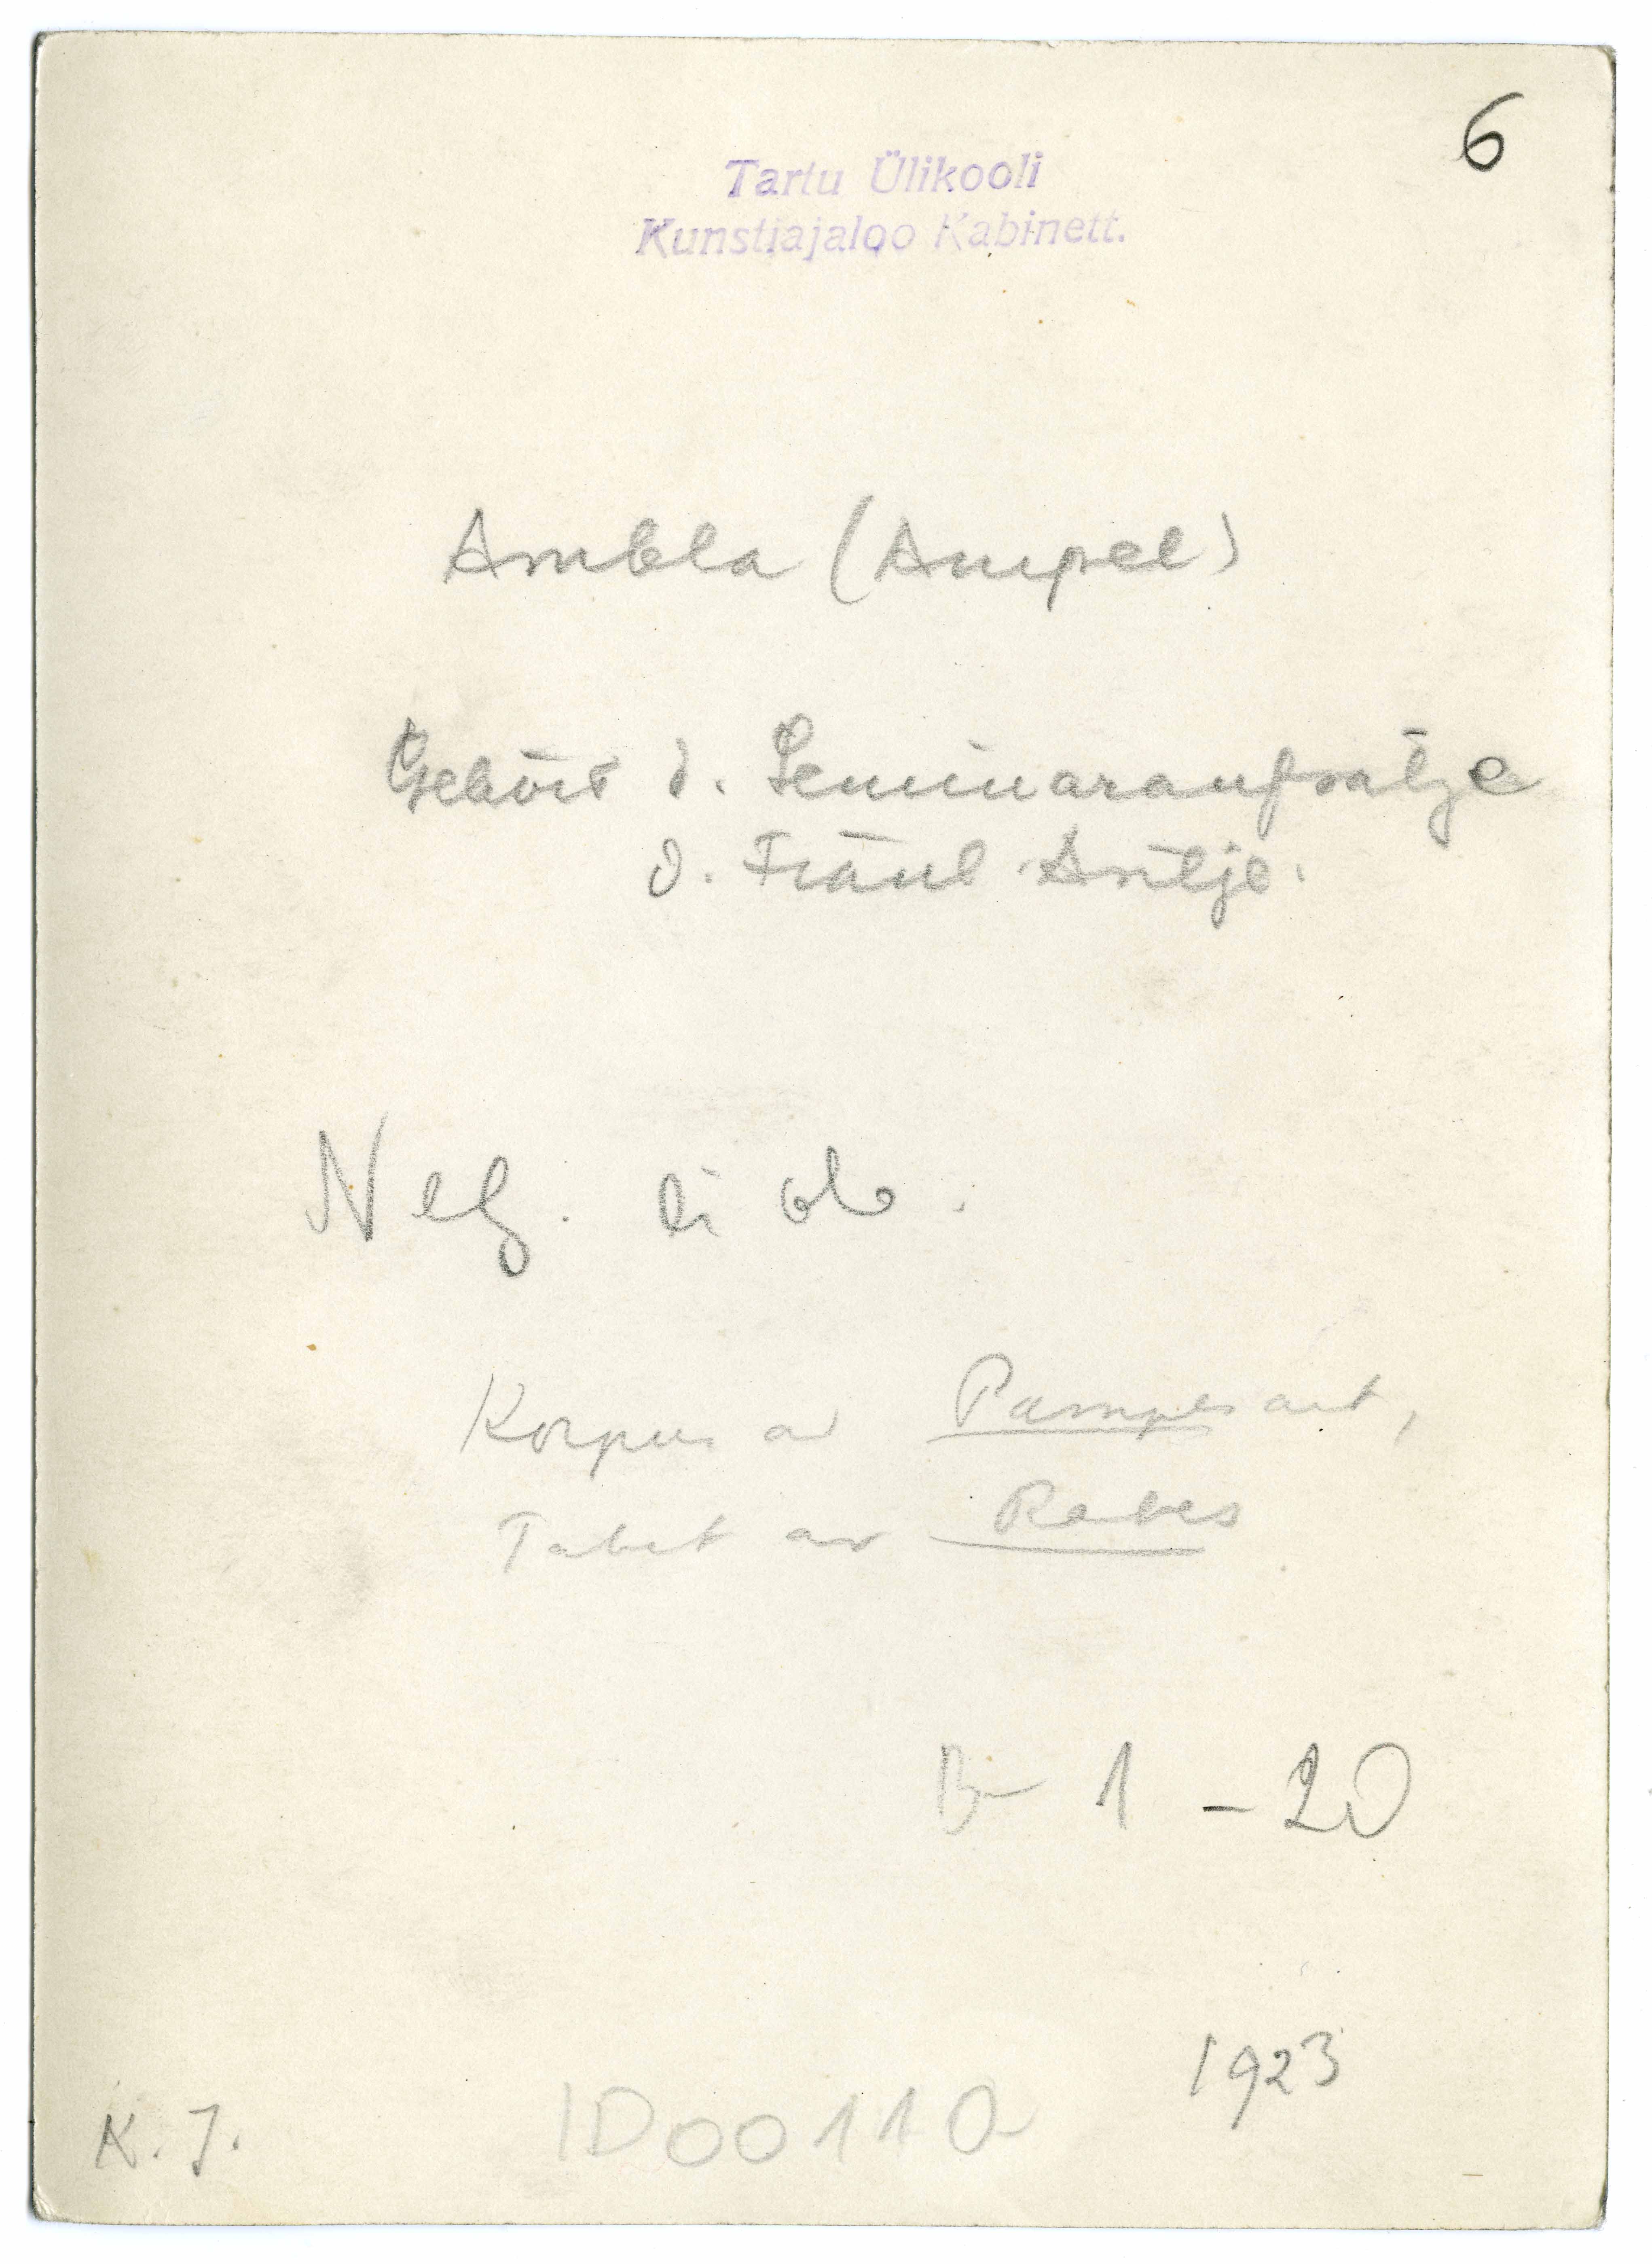 6
Tartu Ülikooli
Kunstiajaloo Kabinett.
Ambla (Ampel)
Gehört d. Seminaraufsätze
d. Fräul
Neg. ei ole.
Korpus av Pampes art,
av Rabes
B- 1 - 20
1923
K. J.
ID00110